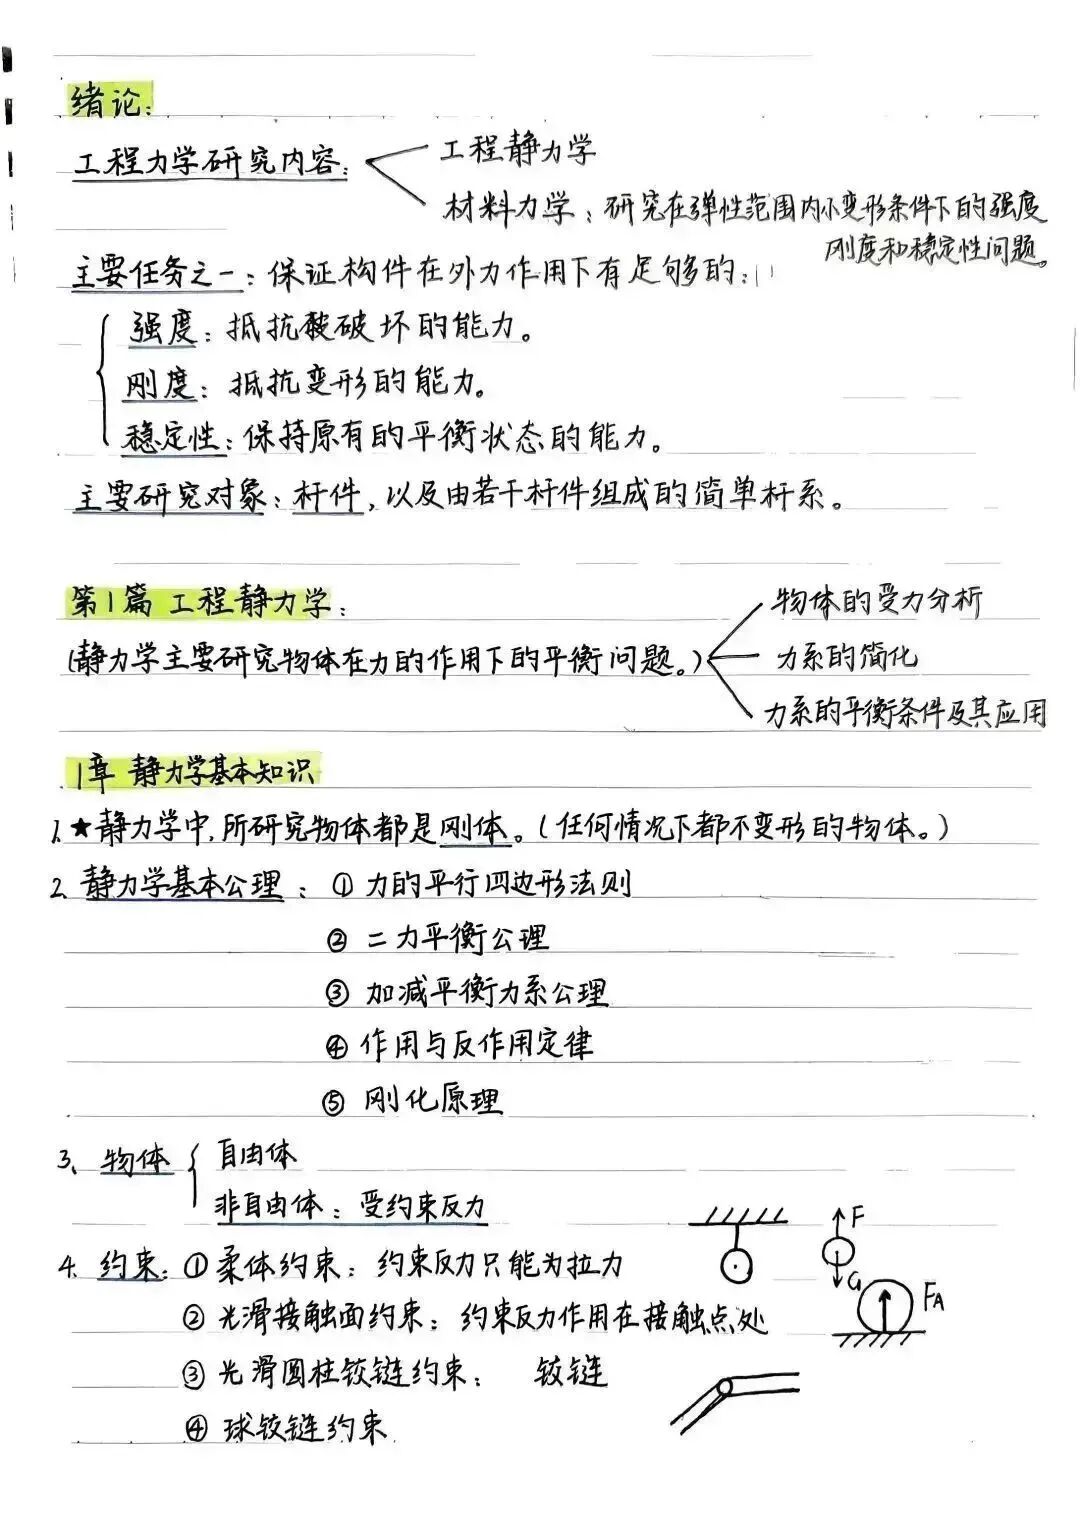 绪论:
工程力学研究内容:
工程静力学
材料力学:研究在弹性范围内小变形条件下的强度
刚度和稳定性问题。
主要任务之一:保证构件在外力作用下有足够的:
强度:抵抗破坏的能力。
刚度:抵抗变形的能力。
稳定性:保持原有的平衡状态的能力。
主要研究对象:杆件,以及由若干杆件组成的简单杆系。
第1篇 工程静力学:
(静力学主要研究物体在力的作用下的平衡问题。)
物体的受力分析
力系的简化
力系的平衡条件及其应用
1章 静力学基本知识
1.★静力学中,所研究物体都是刚体。(任何情况下都不变形的物体。)
2. 静力学基本公理:① 力的平行四边形法则
② 二力平衡公理
③ 加减平衡力系公理
④ 作用与反作用定律
⑤ 刚化原理
3、物体
自由体
非自由体:受约束反力
4. 约束:①柔体约束:约束反力只能为拉力
② 光滑接触面约束:约束反力作用在接触点处
③ 光滑圆柱铰链约束: 铰链
④ 球铰链约束
F
G
FA